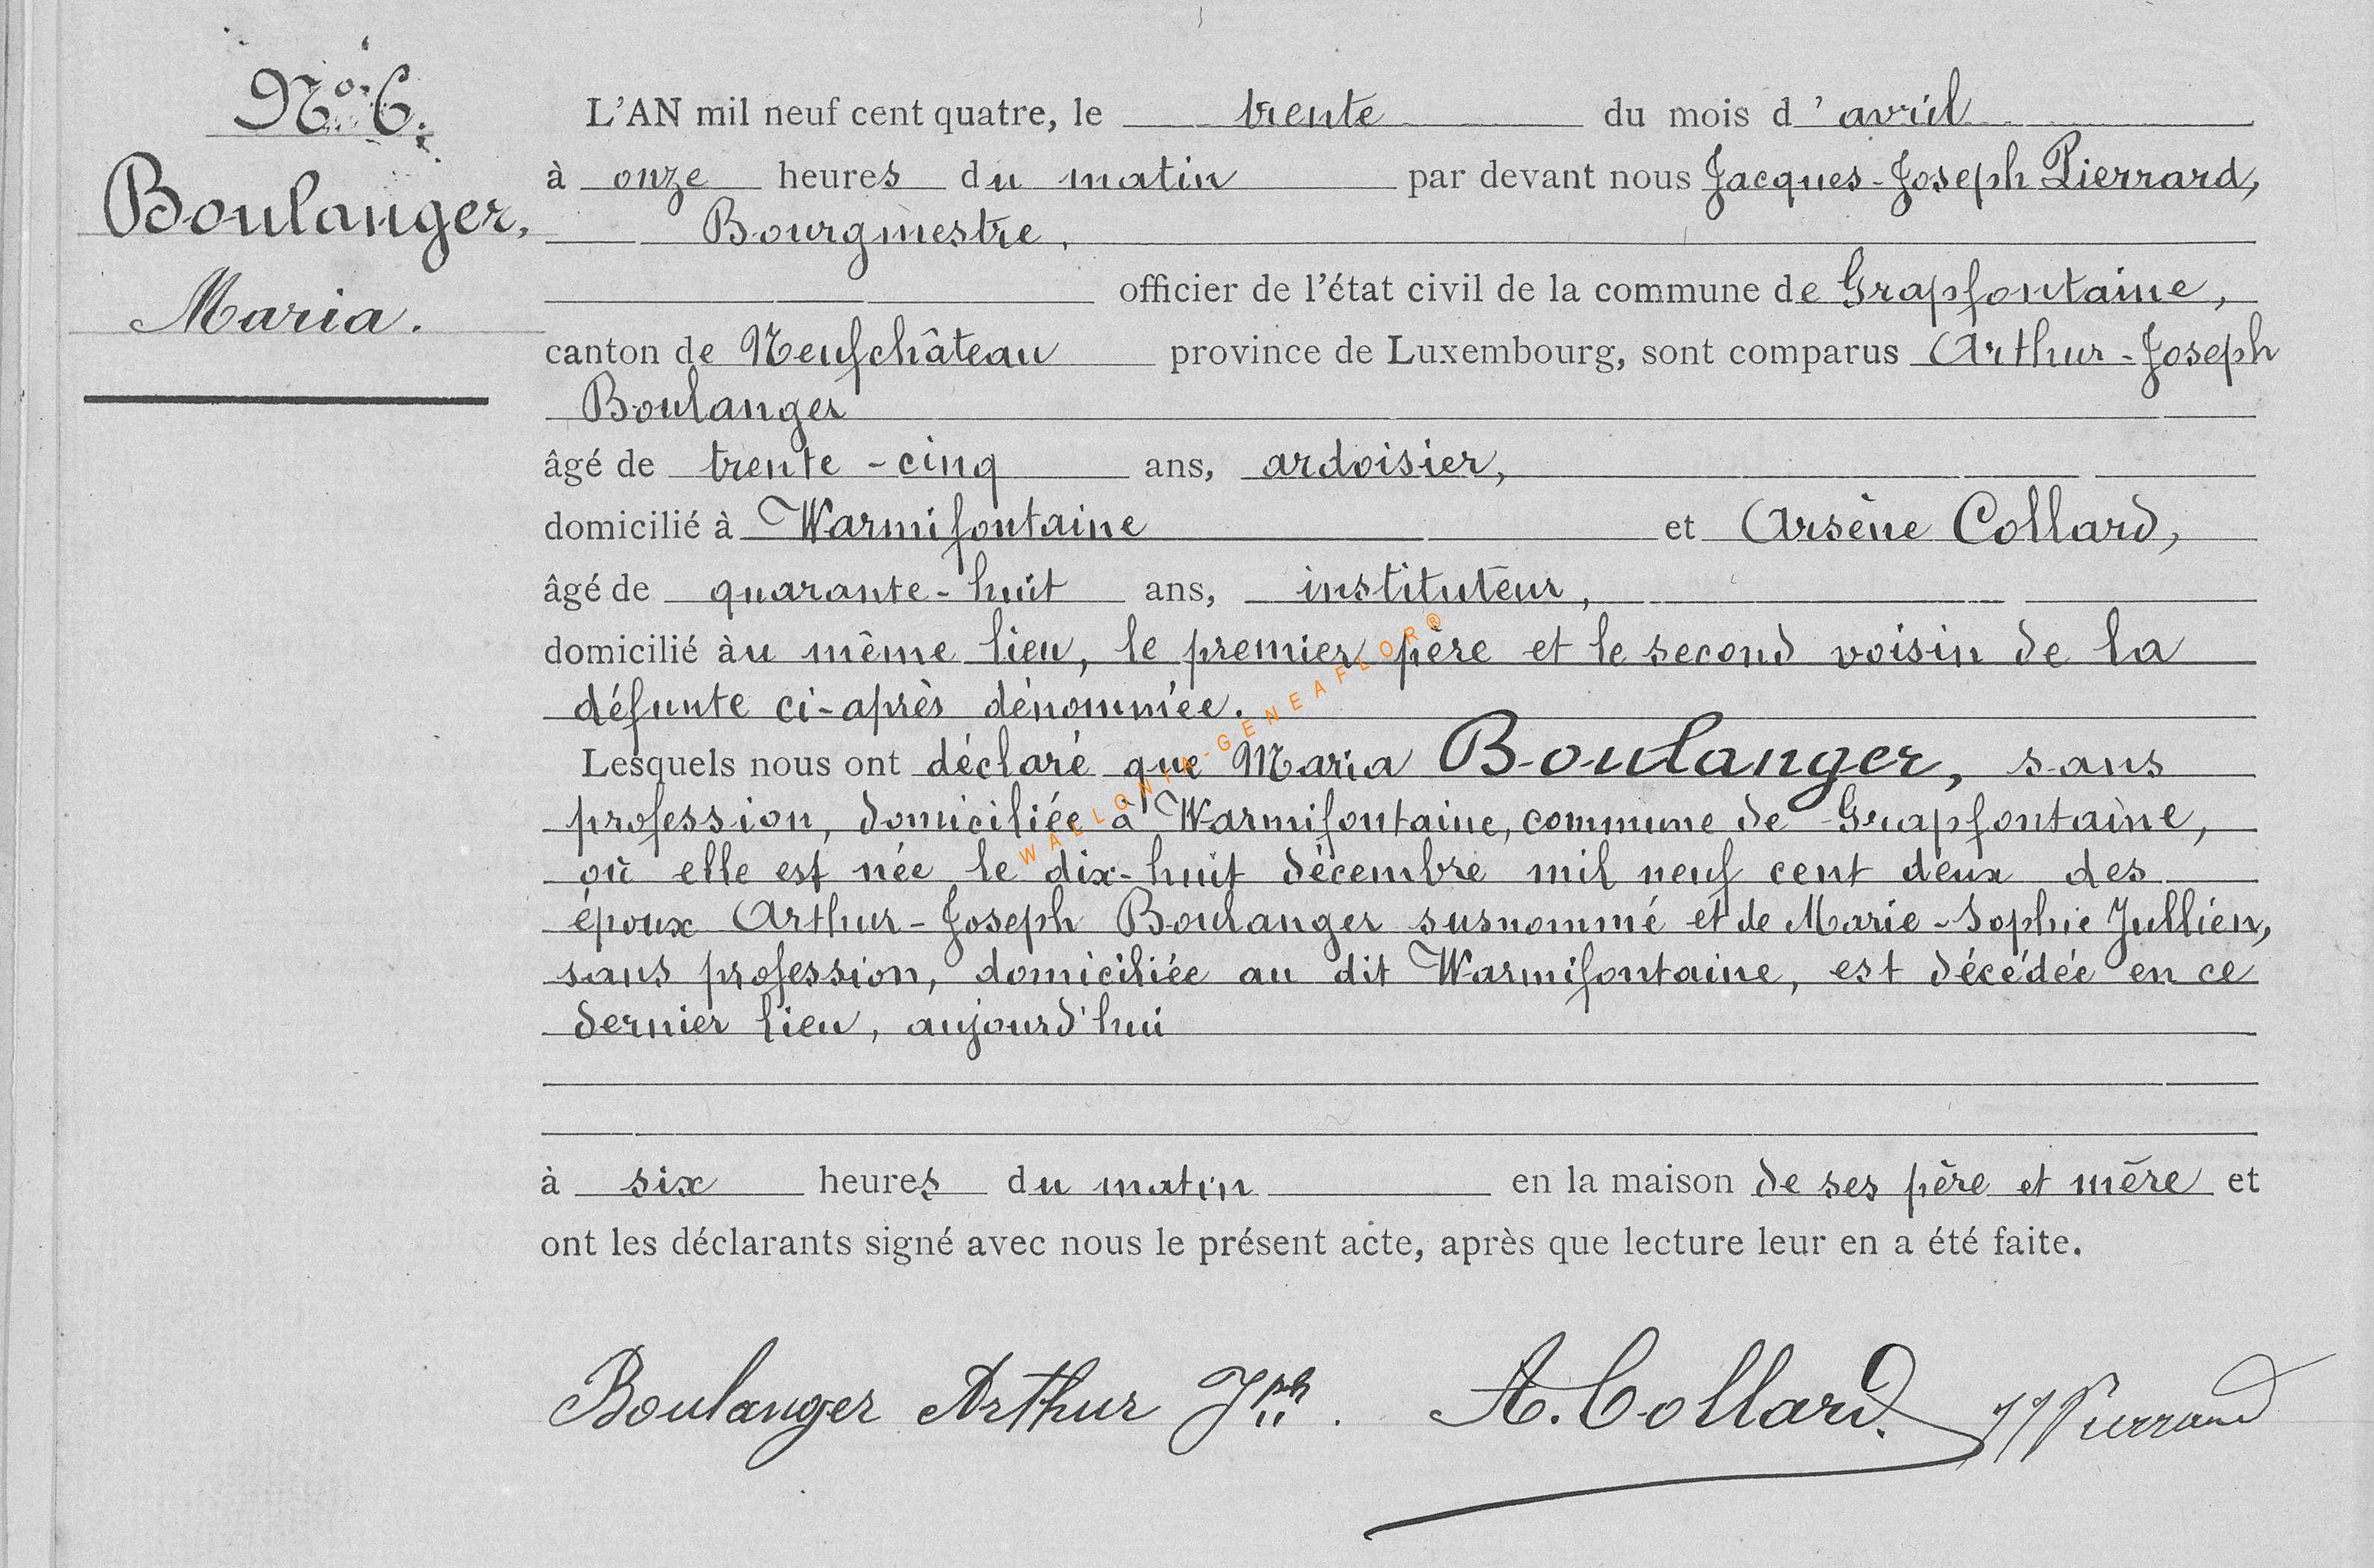 N° 6.
Boulanger,
Maria.
L'AN mil neuf cent quatre, le trente du mois d'avril
à onze heures du matin par devant nous Jacques-Joseph Pierrard,
Bourgmestre,
officier de l'état civil de la commune de Grapfontaine,
canton de Neufchâteau province de Luxembourg, sont comparus Arthur-Joseph
Boulanger
âgé de trente-cinq ans, ardoisier,
domicilié à Warmifontaine et Arsène Collard,
âgé de quarante-huit ans, instituteur,
domicilié àu même lieu, le premier père et le second voisin de la
défunte ci-après dénommée.
Lesquels nous ont déclaré que Maria Boulanger, sans
profession, domiciliée à Warmifontaine, commune de Grapfontaine,
où elle est née le dix-huit décembre mil neuf cent deux des
époux Arthur-Joseph Boulanger susnommé et de Marie-Sophie Jullien,
sans profession, domiciliée au dit Warmifontaine, est décédée en ce
dernier lieu, aujourd'hui
à six heures du matin en la maison de ses père et mère et
ont les déclarants signé avec nous le présent acte, après que lecture leur en a été faite.
Boulanger Arthur Jph. A. Collard. JJ Pierrard
WALLONIA-GENEAFLOR®